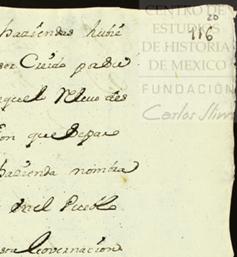 CENTRO DE
ESTUDIOS
DE HISTORIA
DE MEXICO
FUNDACIÓN
Carlos Slim
20
116
haziendas hubié
sor Cuido padre
aquel Nuevo des
on que Sepa
hazienda nombra
en el Puebl
esta Governacion